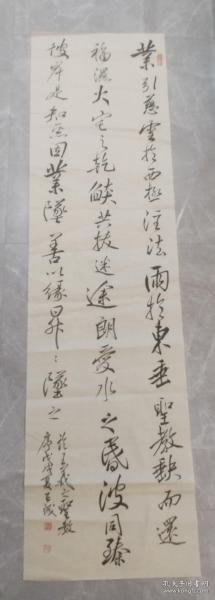 業引慈雲於西極注法雨於東垂聖教缺而還
福濕火宅之乾燄共拔迷途朗愛水之昏波同臻
彼岸是知惡因業墜善以緣昇〻墜之
王羲之聖教
庚戌